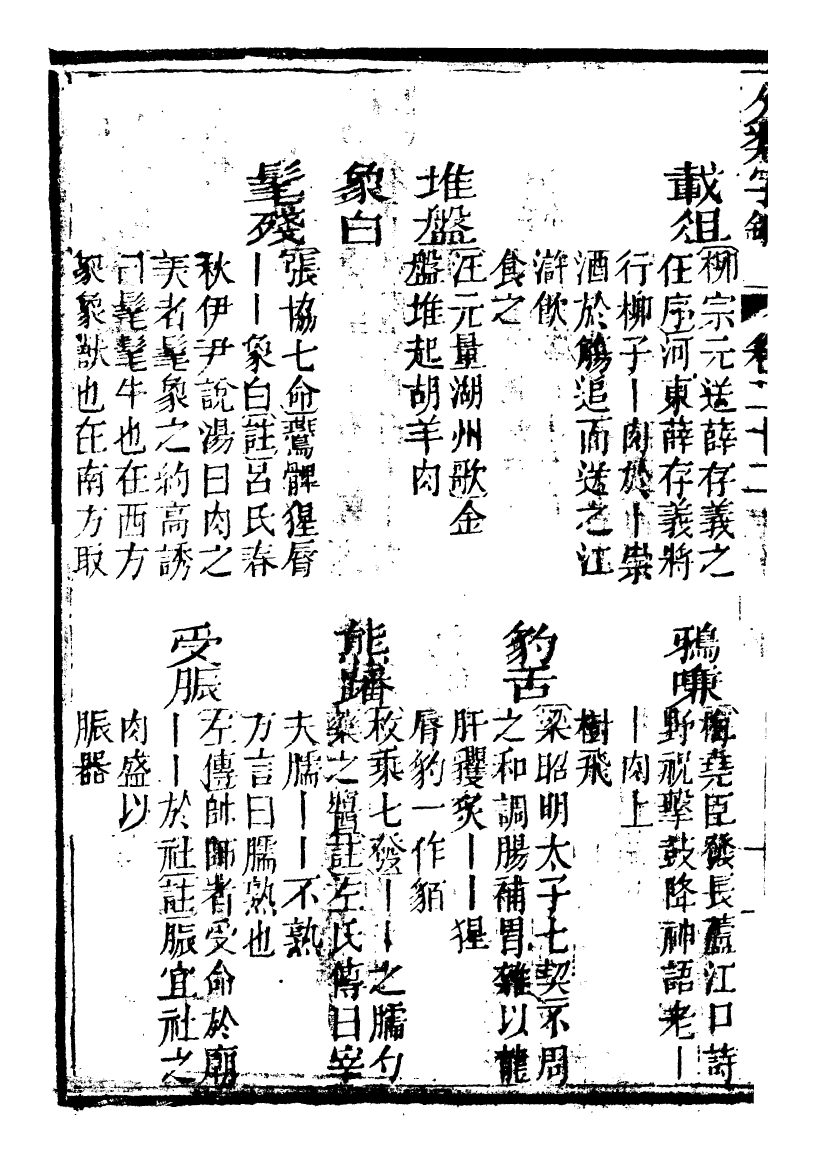 分類字錦 卷二十二
載俎
柳宗元送薛存義之
任序河東薛存義將
行柳子丨肉於丨崇
酒於觴追而送之江
滸飲
食之
堆盤
汪元量湖州歌金
盤堆起胡羊肉
象白
髦殘
張協七命鷰髀猩脣
丨丨象白註呂氏春
秋伊尹說湯曰肉之
美者髦象之約高誘
曰髦髦牛也在西方
象象獸也在南方取
鴉嗛
梅堯臣發長蘆江口詩
野祝擊鼓降神語老丨
丨肉上
樹飛
豹舌
梁昭明太子七契不周
之和調腸補胃雜以龍
肝玃炙丨丨猩
脣豹一作貊
熊蹯
枚乘七發丨丨之臑勺
藥之醬註左氏傳曰宰
夫臑丨丨不熟
方言曰臑熟也
受脤
左傳帥師者受命於廟
丨丨於社註脤宜社之
肉盛以
脤器